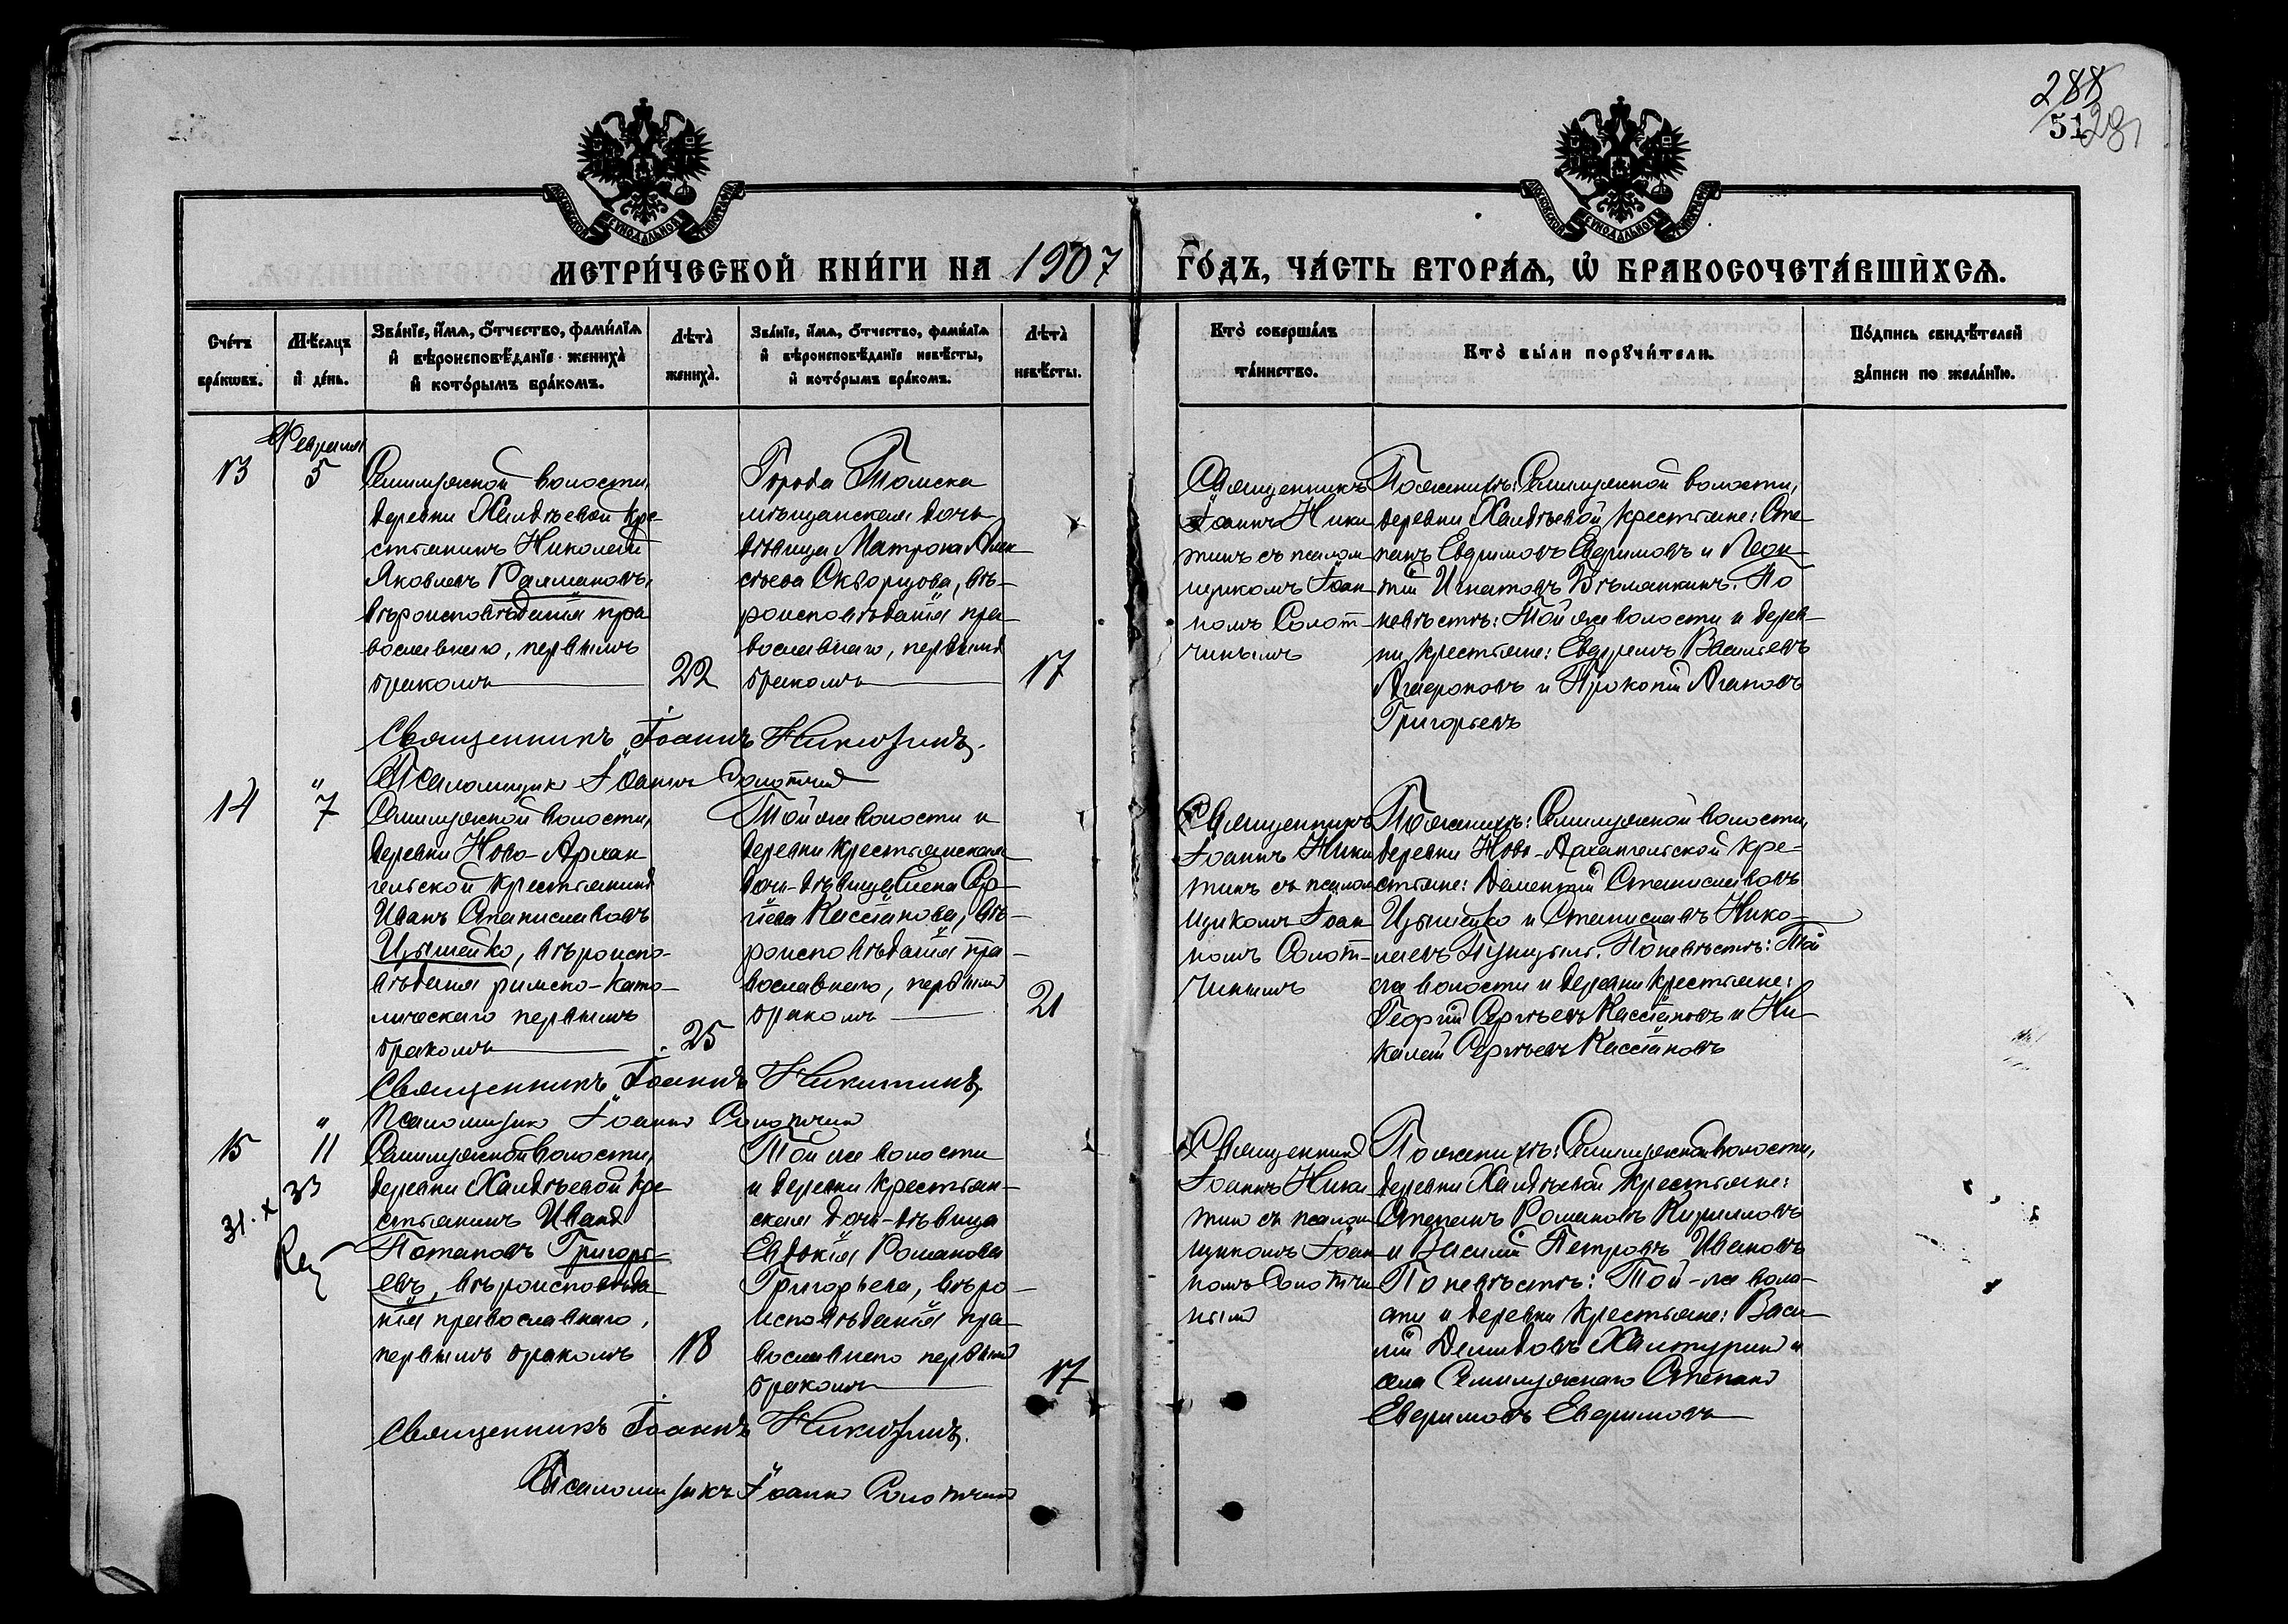 288
51
МЕТРИ́ЧЕСКОЙ КНИ́ГИ НА 1907 ГО́ДЪ, ЧА́СТЬ ВТОРА́Ѧ, Ѡ БРАКОСОЧЕТА́ВШИХСѦ.
Сче́тъ бра́кѡвъ.
Мѣ́сѧцъ и҆ де́нь.
Зва́нїе, и҆́мѧ, ѻ҆́тчество, фами́лїѧ и҆ вѣроисповѣ́данїе жениха̀ и҆ кото́рымъ бра́комъ.
Лѣ́та̀ жениха̀.
Зва́нїе, и҆́мѧ, ѻ҆́тчество, фами́лїѧ и҆ вѣроисповѣ́данїе невѣ́сты, и҆ кото́рымъ бра́комъ.
Лѣ́та̀ невѣ́сты.
Кто̀ соверша́лъ та́инство.
Кто̀ бы́ли порꙋчи́тели.
По́дпись свидѣ́телей за́писи по жела́нїю.
13
Февраля
5
Семилужной волости,
деревни Халдѣевой кре-
стьянинъ Николай
Яковлевъ
вѣроисповѣданія пра
вославнаго, первымъ
бракомъ
22
Города Томска
мѣщанская дочь
дѣвица Матрона Алек
сѣева Скворцова, вѣ-
роисповѣданія пра-
вославнаго, первымъ
бракомъ
17
Священникъ
Іоаннъ Ники
тинъ съ псалом
щикомъ Іоан
номъ Солот-
чинымъ
По женихѣ: Семилужной волости,
деревни Халдѣевой крестьяне: Сте-
панъ Евфимовъ Евфимовъ и Леон-
тій Игнатовъ По
невѣстѣ: Той же волости и дерев-
ни крестьяне: Ефремъ Васильевъ
Агафоновъ и Прокопій Агаповъ
Григорьевъ
Священникъ Іоаннъ Никитинъ.
Псаломщикъ Іоаннъ Солотчинъ
14
"
7
Семилужной волости,
деревни Ново-Архан
гельской крестьянинъ
Иванъ Станиславовъ
Цышейко, вѣроиспо-
вѣданія римско-като-
лическаго первымъ
бракомъ
25
Той же волости и
деревни крестьянская
дочь-дѣвица Елена Сер-
гіева Кассіанова, вѣ-
роисповѣданія пра-
вославнаго, первымъ
бракомъ
21
Священникъ
Іоаннъ Ники
тинъ съ псалом
щикомъ Іоан
номъ Солот-
чинымъ
По женихѣ: Семилужной волости,
деревни Ново-Архангельской кре-
стьяне: Доменикій Станиславовъ
Цышейко и Станиславъ Нико-
лаевъ По невѣстѣ: Той
же волости и деревни крестьяне:
Георгій Сергѣевъ Кассіановъ и Ни-
колай Сергѣевъ Кассіановъ
Священникъ Іоаннъ Никитинъ.
Псаломщикъ Іоаннъ Солотчинъ
15
"
11
31. X 33
Семилужной волости,
деревни Халдѣевой кре
стьянинъ Иванъ
Потаповъ Григорь-
евъ, вѣроисповѣда-
нія православнаго,
первымъ бракомъ
18
Той же волости
и деревни крестьян-
ская дочь-дѣвица
Евдокія Романова
Григорьева, вѣро-
исповѣданія пра-
вославнаго первымъ
бракомъ
17
Священникъ
Іоаннъ Ники
тинъ съ псалом
щикомъ Іоан
номъ Солотчи
нымъ
По женихѣ: Семилужной волости,
деревни Халдѣевой крестьяне:
Степанъ Романовъ Кирилловъ
и Василій Петровъ Ивановъ
По невѣстѣ: Той-же воло-
сти и деревни крестьяне: Васи-
лій Демидовъ Халтуринъ и
села Семилужнаго Степанъ
Евфимовъ Евфимовъ
Священникъ Іоаннъ Никитинъ.
Псаломщикъ Іоаннъ Солотчинъ